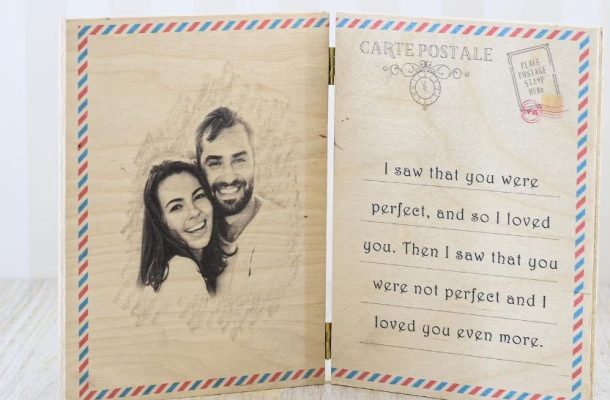 CARTE POSTALE
PLACE
POSTAGE
STAMP
HERE
I saw that you were
perfect, and so I loved
you. Then I saw that you
were not perfect and I
loved you even more.